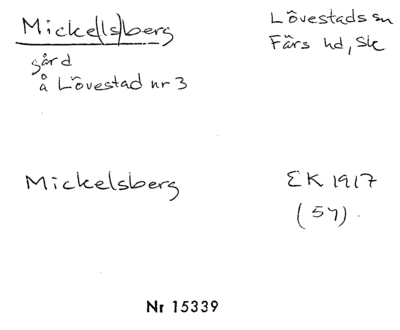 Micke(ls)berg
Lövestads sn
Färs hd, Sk
gård
å Lövestad nr 3
Mickelsberg
EK 1917
(54).
Nr 15339